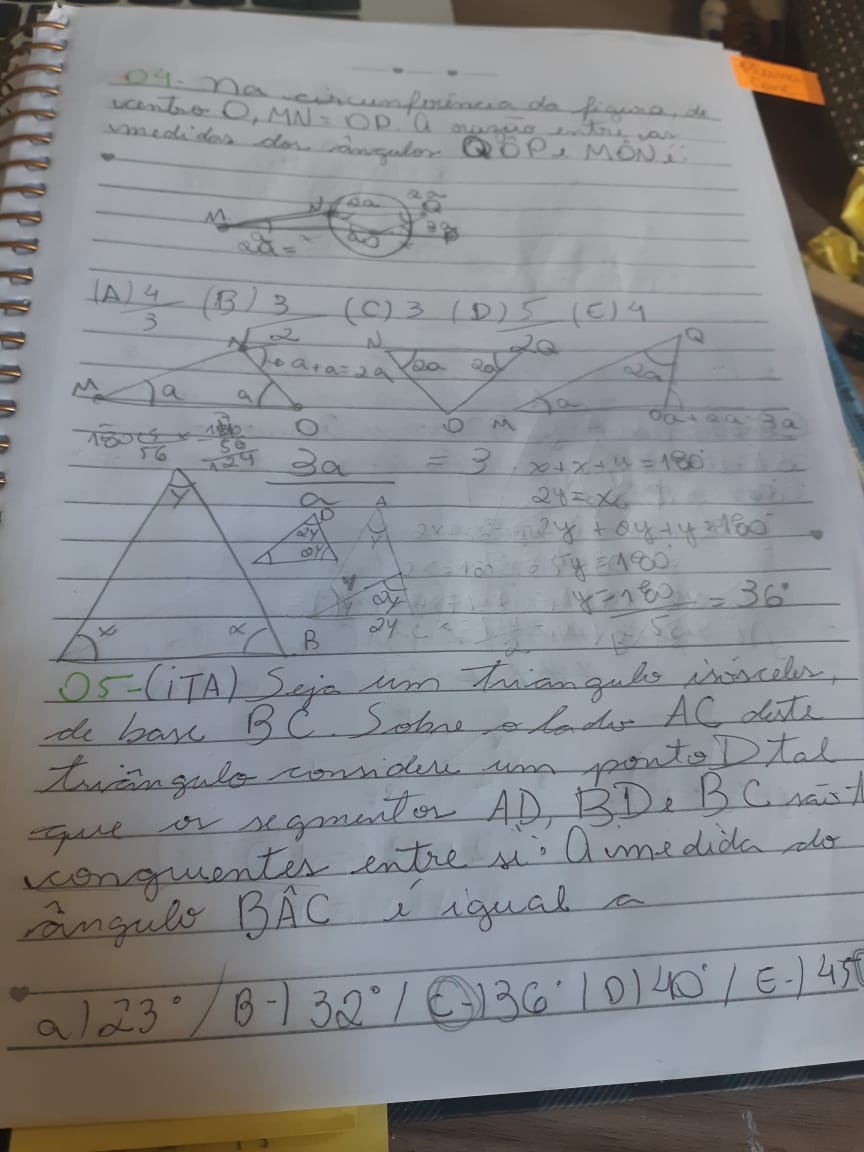 04- Na circunferência da figura, de
centro O, MN = OP. A razão entre as
medidas dos ângulos QÔP e MÔN é:
M N 2a 2a Q
2a = P
(A) 4/3 (B) 3/2 (C) 3 (D) 5 (E) 4
N N 2Q Q
a + a = 2a 2a 2a 2a
M a a a
O O M 0a + 2a = 3a
180 56 180
56
124
3a/a = 3
x + x + y = 180°
2y = x
2y + 2y + y = 180°
5y = 180°
y = 180/5 = 36°
y D A
2y y
2y y 2y
x x B 2y
05-(ITA) Seja um triângulo isósceles,
de base BC. Sobre o lado AC deste
triângulo considere um ponto D tal
que os segmentos AD, BD e BC são
congruentes entre si: A medida do
ângulo BÂC é igual a
a) 23° / B-) 32° / C-) 36° / D) 40° / E-) 45°